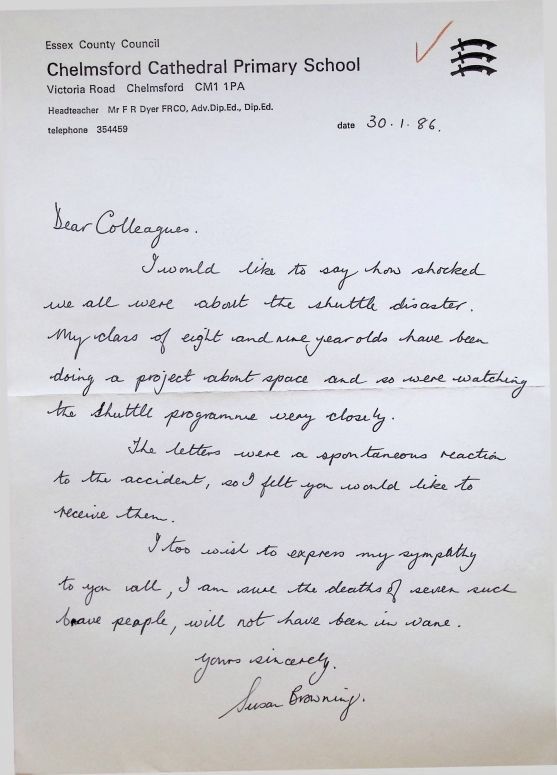 Essex County Council
Chelmsford Cathedral Primary School
Victoria Road Chelmsford CM1 1PA
Headteacher Mr F R Dyer FRCO, Adv.Dip.Ed., Dip.Ed.
telephone 354459
date 30.1.86.
Dear Colleagues.
I would like to say how shocked
we all were about the shuttle disaster.
My class of eight and nine year olds have been
doing a project about space and so were watching
the shuttle programme very closely.
The letters were a spontaneous reaction
to the accident, so I felt you would like to
receive them.
I too wish to express my sympathy
to you all, I am sure the deaths of seven such
brave people, will not have been in vane.
Yours sincerely.
Susan Browning.